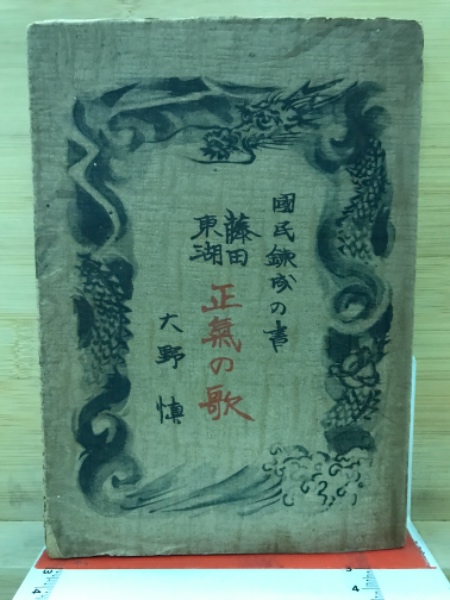 國民錬成の書
藤田
東湖
正氣の歌
大野慎
3
4
3
4